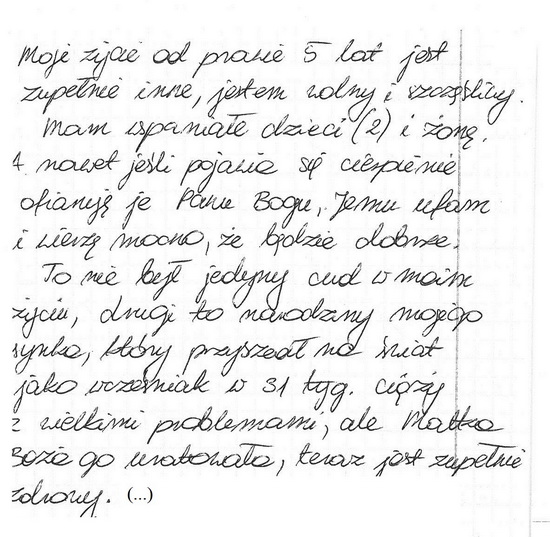 Moje życie od prawie 5 lat jest
zupełnie inne, jestem wolny i szczęśliwy.
Mam wspaniałe dzieci (2) i żonę.
A nawet jeśli pojawia się cierpienie
ofiaruję je Panu Bogu, Jemu ufam
i wierzę mocno, że będzie dobrze.
To nie był jedyny cud w moim
życiu, drugi to narodziny mojego
synka, który przyszedł na świat
jako wcześniak w 31 tyg. ciąży
z wielkimi problemami, ale Matka
Boża go uratowała, teraz jest zupełnie
zdrowy. (...)